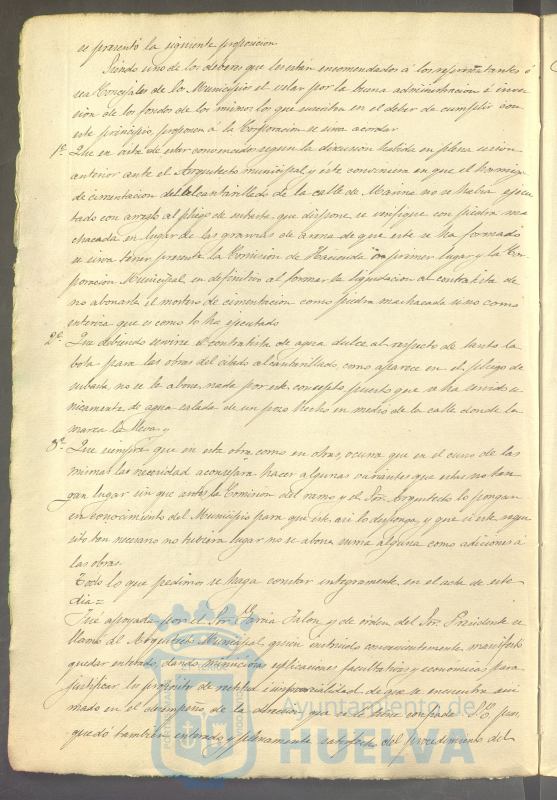 se presentó la siguiente proposicion
Siendo uno de los deberes que les están encomendados á los representantes ó
sea Concejales de los Municipios el velar por la buena administración é inver
sion de los fondos de los mismos los que suscriben en el deber de cumplir con
este principio, proponen á la Corporacion se sirva acordar
1º Que en vista de estar convencidos segun la discusion habida en plena sesion
anterior ante el Arquitecto municipal y éste convienen en que el hormigon
de cimentacion del alcantarillado de la calle de Marina no se había ejecu
tado con arreglo al pliego de subasta que dispone se verifique con piedra ma
chacada en lugar de las gravas de arena de que este se ha formado
se sirva tener presente la Comision de Hacienda en primer lugar y la Cor
poracion Municipal en definitiva al formar la liquidacion al contratista de
no abonarle el mortero de cimentacion como piedra machacada sino como
que es como lo ha ejecutado
2º Que debiendo servirse el contratista de agua dulce al respecto de tanto la
bota para las obras del citado alcantarillado, como aparece en el pliego de
subasta no se le abone nada por este concepto puesto que se ha servido u
nicamente de agua salada de un pozo hecho en medio de la calle donde la
marea la lleva y
3º Que siempre que en esta otra como en otras, ocurra que en el curso de las
mismas la necesidad aconsejara hacer algunas variantes que estas no ten
gan lugar sin que antes la Comision del ramo y el Sor. Arquitecto lo pongan
en conocimiento del Municipio para que éste asi lo disponga, y que si este requi
sito tan necesario no tubiera lugar no se abone suma alguna como adiciones á
las obras.
Todo lo que pedimos se haga constar integramente en el acta de este
dia=
Fué apoyada por el Sor. Garcia Jalon y de órden del Sor. Presidente se
llamó al Arquitecto Municipal, quien enterado convenientemente, manifestó
quedar enterado, dando minuciosas esplicaciones facultativas y economicas para
justificar los propositos de rectitud é imparcialidad de que se encuentra ani
mado en el desempeño de la direccion que se le tiene confiada. S.E. pues
quedó tambien enterado y plenamente satisfecho del procedimiento del
Ayuntamiento de
HUELVA